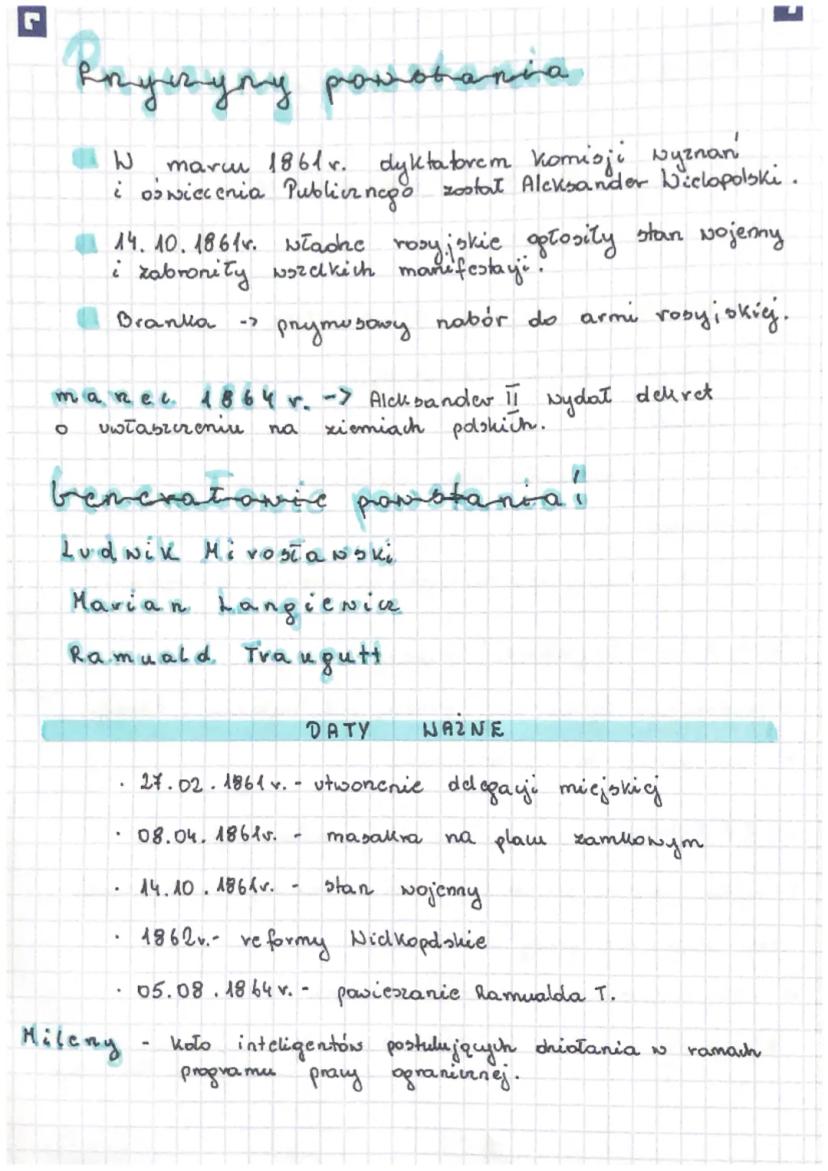 Przyczyny powstania
W marcu 1861r. dyktatorem Komisji wyznań
i oświecenia Publicznego został Aleksander Wielopolski.
14.10.1861r. władze rosyjskie ogłosiły stan wojenny
i zabroniły wszelkich manifestacji.
Branka -> przymusowy nabór do armi rosyjskiej.
marzec 1864 r. -> Aleksander II wydał dekret
o uwłaszczeniu na ziemiach polskich.
Generałowie powstania!
Ludwik Mirosławski
Marian Langiewicz
Ramuald Traugutt
DATY WAŻNE
· 27.02.1861r. - utworzenie delegacji miejskiej
· 08.04.1861r. - masakra na placu zamkowym
· 14.10.1861r. - stan wojenny
· 1862r.- reformy Wielkopolskie
· 05.08.1864r. - powieszanie Ramualda T.
Mileny - koło inteligentów postulujących działania w ramach
programu pracy ogranicznej.